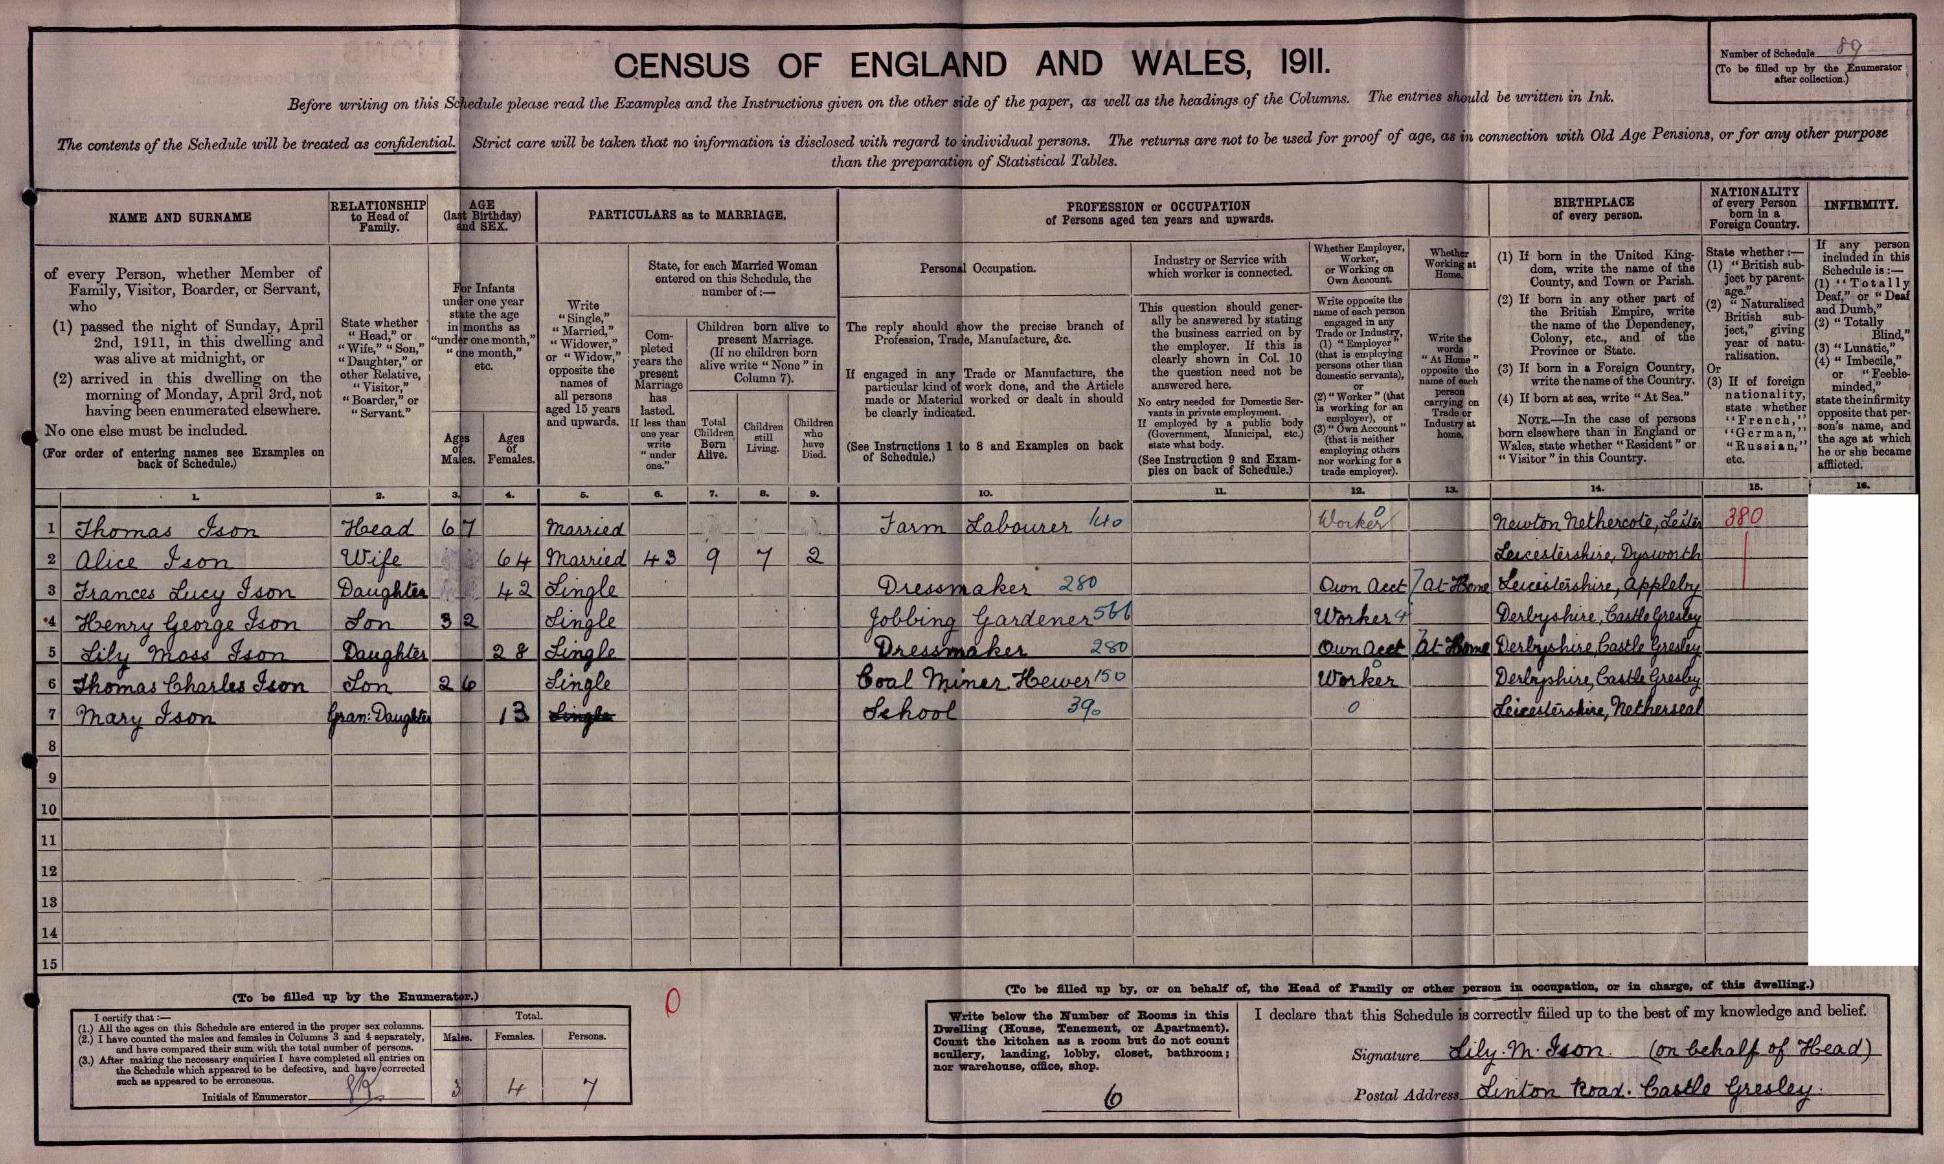 CENSUS OF ENGLAND AND WALES, 1911.
Number of Schedule 89
(To be filled up by the Enumerator
after collection.)
Before writing on this Schedule please read the Examples and the Instructions given on the other side of the paper, as well as the headings of the Columns. The entries should be written in Ink.
The contents of the Schedule will be treated as confidential. Strict care will be taken that no information is disclosed with regard to individual persons. The returns are not to be used for proof of age, as in connection with Old Age Pensions, or for any other purpose
than the preparation of Statistical Tables.
NAME AND SURNAME
of every Person, whether Member of
Family, Visitor, Boarder, or Servant,
who
(1) passed the night of Sunday, April
2nd, 1911, in this dwelling and
was alive at midnight, or
(2) arrived in this dwelling on the
morning of Monday, April 3rd, not
having been enumerated elsewhere.
No one else must be included.
(For order of entering names see Examples on
back of Schedule.)
RELATIONSHIP
to Head of
Family.
State whether
"Head," or
"Wife," "Son,"
"Daughter," or
other Relative,
"Visitor,"
"Boarder," or
"Servant."
AGE
(last Birthday)
and SEX.
For Infants
under one year
state the age
in months as
"under one month,"
"one month,"
etc.
Ages
of
Males.
Ages
of
Females.
PARTICULARS as to MARRIAGE.
Write
"Single,"
"Married,"
"Widower,"
or "Widow,"
opposite the
names of
all persons
aged 15 years
and upwards.
State, for each Married Woman
entered on this Schedule, the
number of:—
Com-
pleted
years the
present
Marriage
has
lasted.
If less than
one year
write
"under
one."
Children born alive to
present Marriage.
(If no children born
alive write "None" in
Column 7).
Total
Children
Born
Alive.
Children
still
Living.
Children
who
have
Died.
PROFESSION or OCCUPATION
of Persons aged ten years and upwards.
Personal Occupation.
The reply should show the precise branch of
Profession, Trade, Manufacture, &c.
If engaged in any Trade or Manufacture, the
particular kind of work done, and the Article
made or Material worked or dealt in should
be clearly indicated.
(See Instructions 1 to 8 and Examples on back
of Schedule.)
Industry or Service with
which worker is connected.
This question should gener-
ally be answered by stating
the business carried on by
the employer. If this is
clearly shown in Col. 10
the question need not be
answered here.
No entry needed for Domestic Ser-
vants in private employment.
If employed by a public body
(Government, Municipal, etc.)
state what body.
(See Instruction 9 and Exam-
ples on back of Schedule.)
Whether Employer,
Worker,
or Working on
Own Account.
Write opposite the
name of each person
engaged in any
Trade or Industry,
(1) "Employer"
(that is employing
persons other than
domestic servants),
or
(2) "Worker" (that
is working for an
employer), or
(3) "Own Account"
(that is neither
employing others
nor working for a
trade employer).
Whether
Working at
Home.
Write the
words
"At Home"
opposite the
name of each
person
carrying on
Trade or
Industry at
home.
BIRTHPLACE
of every person.
(1) If born in the United King-
dom, write the name of the
County, and Town or Parish.
(2) If born in any other part of
the British Empire, write
the name of the Dependency,
Colony, etc., and of the
Province or State.
(3) If born in a Foreign Country,
write the name of the Country.
(4) If born at sea, write "At Sea."
NOTE.—In the case of persons
born elsewhere than in England or
Wales, state whether "Resident" or
"Visitor" in this Country.
NATIONALITY
of every Person
born in a
Foreign Country.
State whether:—
(1) "British sub-
ject by parent-
age."
(2) "Naturalised
British sub-
ject," giving
year of natu-
ralisation.
Or
(3) If of foreign
nationality,
state whether
"French,"
"German,"
"Russian,"
etc.
INFIRMITY.
If any person
included in this
Schedule is:—
(1) "Totally
Deaf," or "Deaf
and Dumb,"
(2) "Totally
Blind,"
(3) "Lunatic,"
(4) "Imbecile,"
or "Feeble-
minded,"
state the infirmity
opposite that per-
son's name, and
the age at which
he or she became
afflicted.
1. 2. 3. 4. 5. 6. 7. 8. 9. 10. 11. 12. 13. 14. 15. 16.
1 Thomas Ison Head 67 Married Farm Labourer 140 Worker 0 Newton Nethercote, Lester 380
2 Alice Ison Wife 64 Married 43 9 7 2 Leicestershire, Dysworth
3 Frances Lucy Ison Daughter 42 Single Dressmaker 280 Own Acct 7 At Home Leicestershire, Appleby
4 Henry George Ison Son 32 Single Jobbing Gardener 566 Worker 4 Derbyshire, Castle Gresley
5 Lily Moss Ison Daughter 28 Single Dressmaker 280 Own Acct 7 At Home Derbyshire, Castle Gresley
6 Thomas Charles Ison Son 26 Single Coal Miner Hewer 150 Worker 0 Derbyshire, Castle Gresley
7 Mary Ison Gran: Daughter 13 Single School 390 0 Leicestershire, Netherseal
8
9
10
11
12
13
14
15
(To be filled up by the Enumerator.)
I certify that:—
(1.) All the ages on this Schedule are entered in the proper sex columns.
(2.) I have counted the males and females in Columns 3 and 4 separately,
and have compared their sum with the total number of persons.
(3.) After making the necessary enquiries I have completed all entries on
the Schedule which appeared to be defective, and have corrected
such as appeared to be erroneous.
Initials of Enumerator
Total.
Males. Females. Persons.
3 4 7
0
(To be filled up by, or on behalf of, the Head of Family or other person in occupation, or in charge, of this dwelling.)
Write below the Number of Rooms in this
Dwelling (House, Tenement, or Apartment).
Count the kitchen as a room but do not count
scullery, landing, lobby, closet, bathroom;
nor warehouse, office, shop.
6
I declare that this Schedule is correctly filled up to the best of my knowledge and belief.
Signature Lily. M. Ison. (on behalf of Head)
Postal Address Linton Road. Castle Gresley.